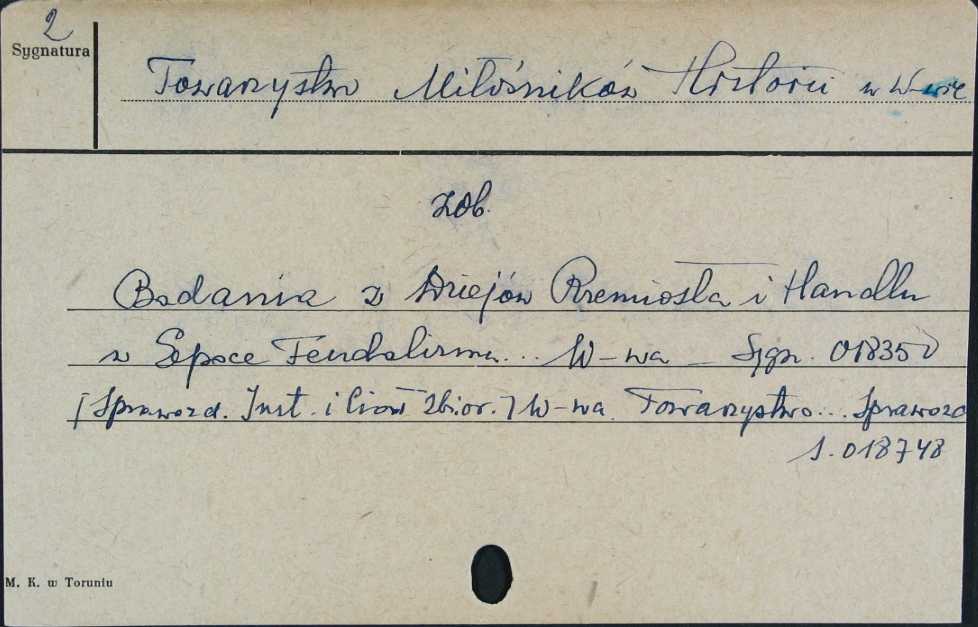 2
Sygnatura
Towarzystwo Miłośników Historii w W-wie
zob.
Badania z Dziejów Rzemiosła i Handlu
w Epoce Feudalizmu... W-wa – Sygn. 018350
[Sprawozd. Inst. i Ciał Zbior.] W-wa. Towarzystwo... Sprawozd
S. 018748
M. K. w Toruniu